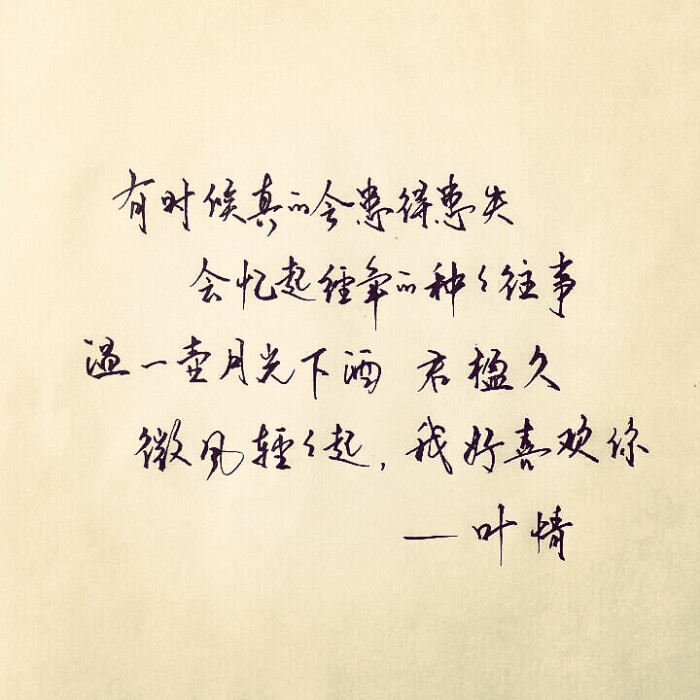 有时候真的会患得患失
会忆起经年的种々往事
温一壶月光下酒 君楹久
微风轻々起，我好喜欢你
—叶情